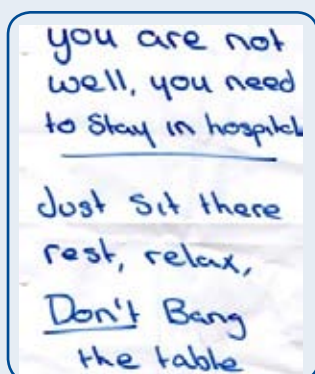 you are not
well, you need
to Stay in hospital
Just Sit there
rest, relax,
Don't Bang
the table